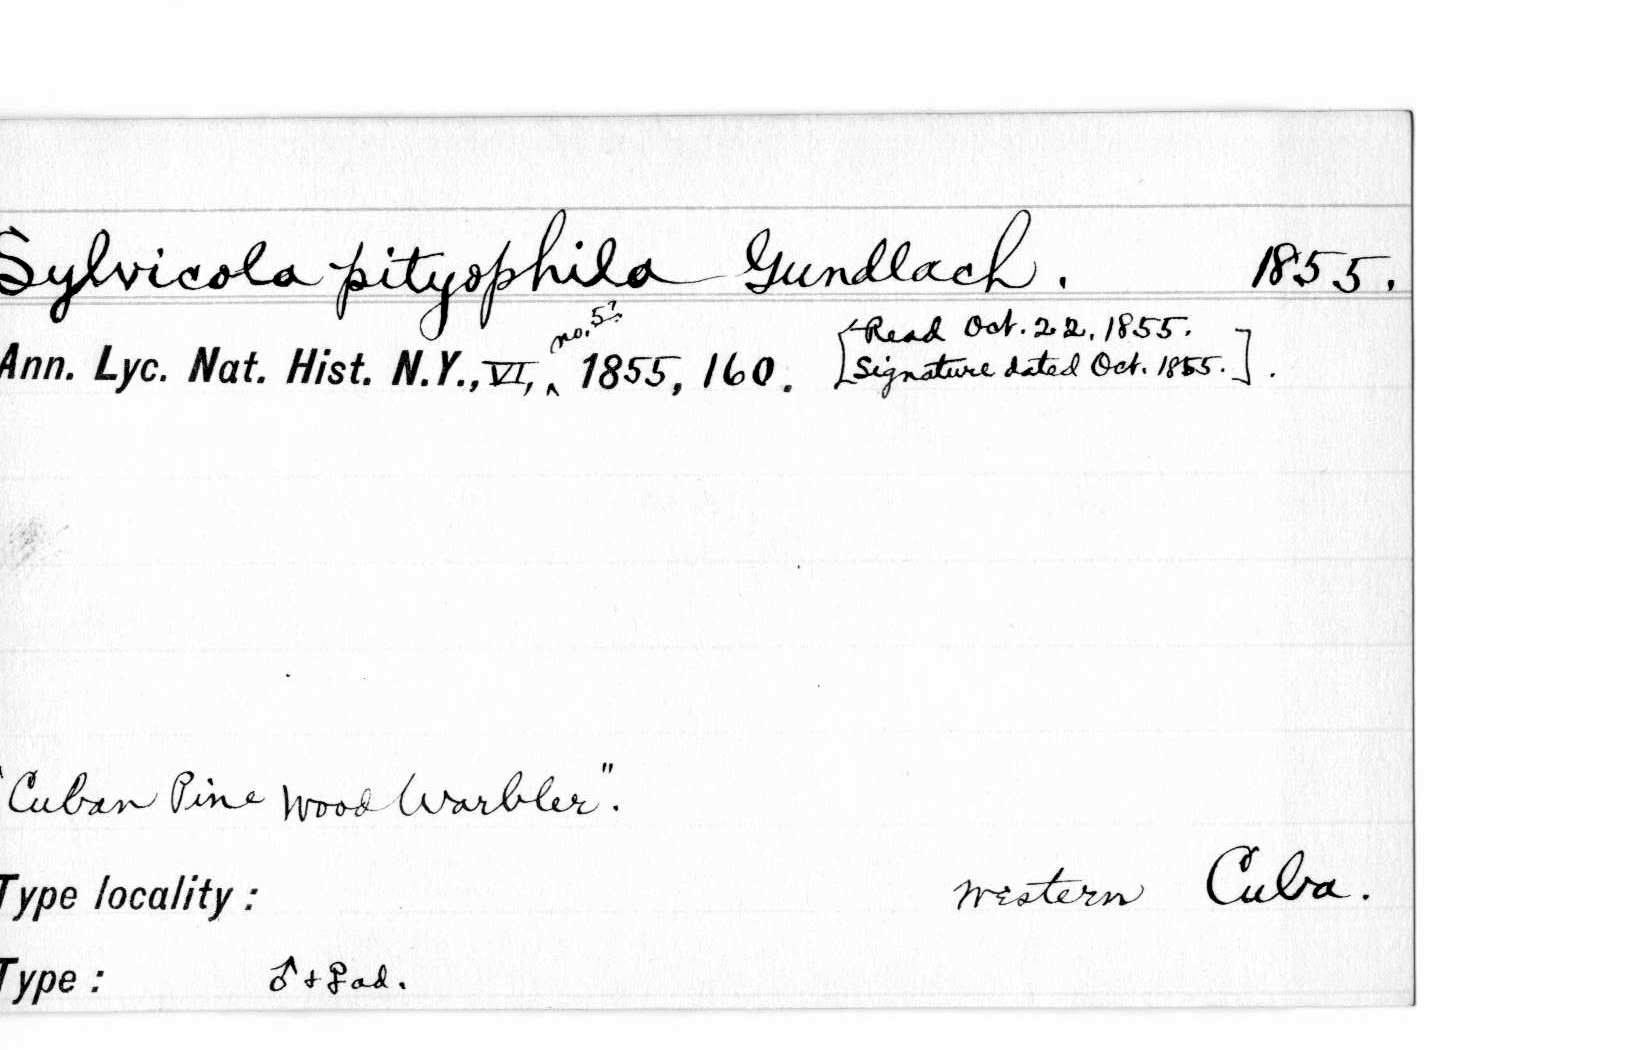 Sylvicola pityophila Gundlach. 1855.
Ann. Lyc. Nat. Hist. N.Y., VI, ‸ no. 5?, 1855, 160. [Read Oct. 22, 1855.
Signature dated Oct. 1855.].
"Cuban Pine Wood Warbler".
Type locality: western Cuba.
Type: ♂ + ♀ ad.